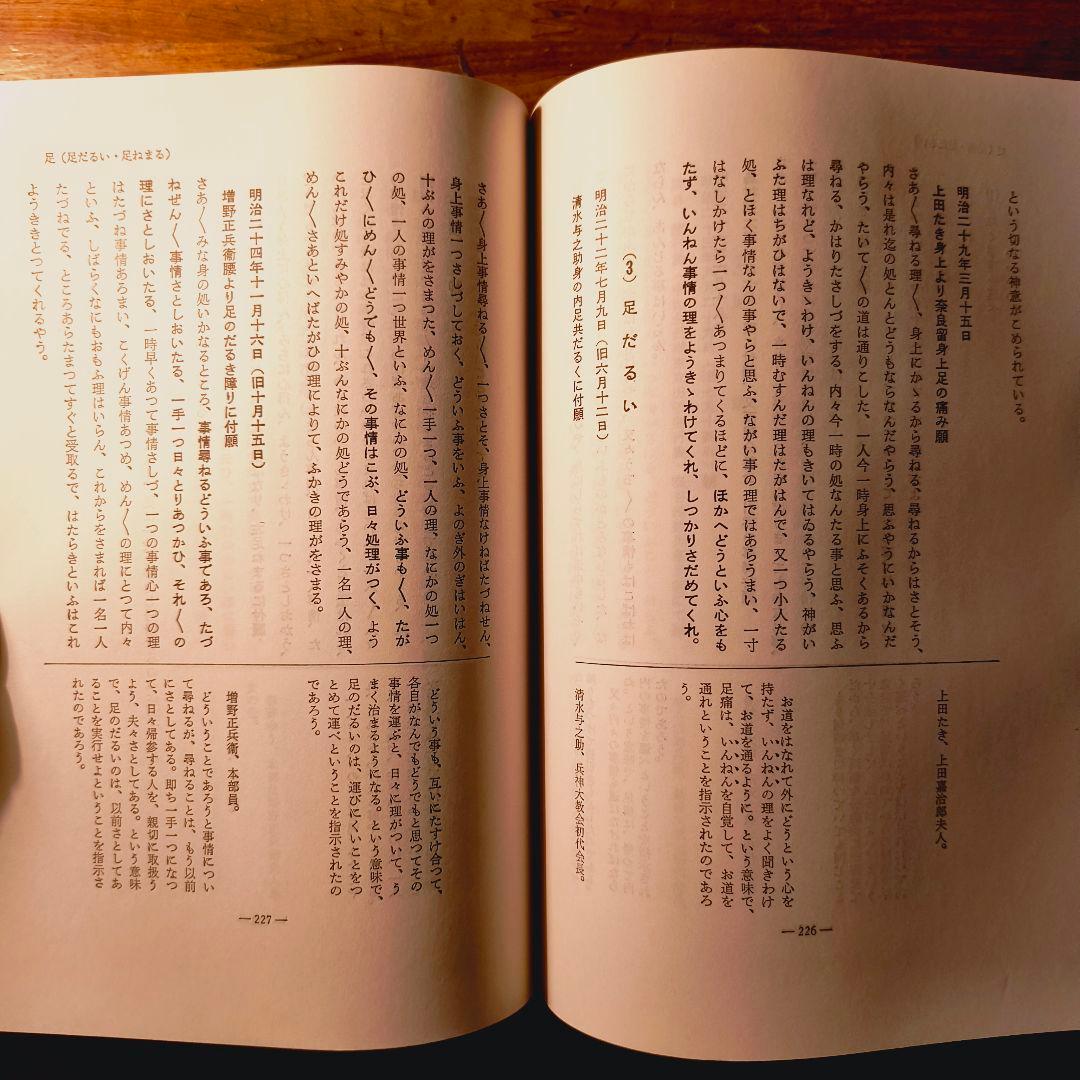 という切なる神意がこめられている。
明治二十九年三月十五日
上田たき身上より奈良留身上足の痛み願
さあ〳〵尋ねる理〳〵、身上にかゝるから尋ねる、尋ねるからはさとそう、
内々は是れ迄の処とんとどうもならなんだやらう、思ふやうにいかなんだ
やらう、たいて〳〵の道は通りこした、一人今一時身上にふそくあるから
尋ねる、かはりたさしづをする、内々今一時の処なんたる事と思ふ、思ふ
は理なれど、ようきゝわけ、いんねんの理もきいてはゐるやらう、神がい
ふた理はちがひはないで、一時むすんだ理はたがはんで、又一つ小人たる
処、とほく事情なんの事やらと思ふ、ながい事の理ではあらうまい、一寸
はなしかけたら一つ〳〵あつまりてくるほどに、ほかへどうといふ心をも
たず、いんねん事情の理をようきゝわけてくれ、しつかりさだめてくれ。
上田たき、上田嘉治郎夫人。
お道をはなれて外にどうという心を
持たず、いんねんの理をよく聞きわけ
て、お道を通るように。という意味で、
足痛は、いんねんを自覚して、お道を
通れということを指示されたのであろ
う。
(3) 足だるい
明治二十二年七月九日(旧六月十二日)
清水与之助身の内足共だるくに付願
清水与之助、兵神大教会初代会長。
—226—
足(足だるい・足ねまる)
さあ〳〵身上事情尋ねる〳〵、一つさとそ、身上事情なけねばたづねせん、
身上事情一つさしづしておく、どういふ事をいふ、よのぎ外のぎはいはん、
十ぶんの理がをさまつた、めん〳〵一手一つ、一人の理、なにかの処一つ
の処、一人の事情一つ世界といふ、なにかの処、どういふ事も〳〵、たが
ひ〳〵にめん〳〵どうでも〳〵、その事情はこぶ、日々処理がつく、よう
これだけ処すみやかの処、十ぶんなにかの処どうであらう、一名一人の理、
めん〳〵さあといへばたがひの理によりて、ふかきの理がをさまる。
どういう事も、互いにたすけ合つて、
各自がなんでもどうでもと思つてその
事情を運ぶと、日々に理がついて、う
まく治まるようになる。という意味で、
足のだるいのは、運びにくいことをつ
とめて運べということを指示されたの
であろう。
明治二十四年十一月十六日(旧十月十五日)
増野正兵衛腰より足のだるき障りに付願
さあ〳〵みな身の処いかなるところ、事情尋ねるどういふ事であろ、たづ
ねぜん〳〵事情さとしおいたる、一手一つ日々とりあつかひ、それ〳〵の
理にさとしおいたる、一時早くあつて事情さしづ、一つの事情心一つの理
はたづね事情あろまい、こくげん事情あつめ、めん〳〵の理にとつて内々
といふ、しばらくなにもおもふ理はいらん、これからをさまれば一名一人
たづねでる、ところあらたまつてすぐと受取るで、はたらきといふはこれ
ようききとつてくれるやう。
増野正兵衛、本部員。
どういうことであろうと事情につい
て尋ねるが、尋ねることは、もう以前
にさとしてある。即ち一手一つになつ
て、日々帰参する人を、親切に取扱う
よう、夫々さとしてある。という意味
で、足のだるいのは、以前さとしてあ
ることを実行せよということを指示さ
れたのであろう。
—227—